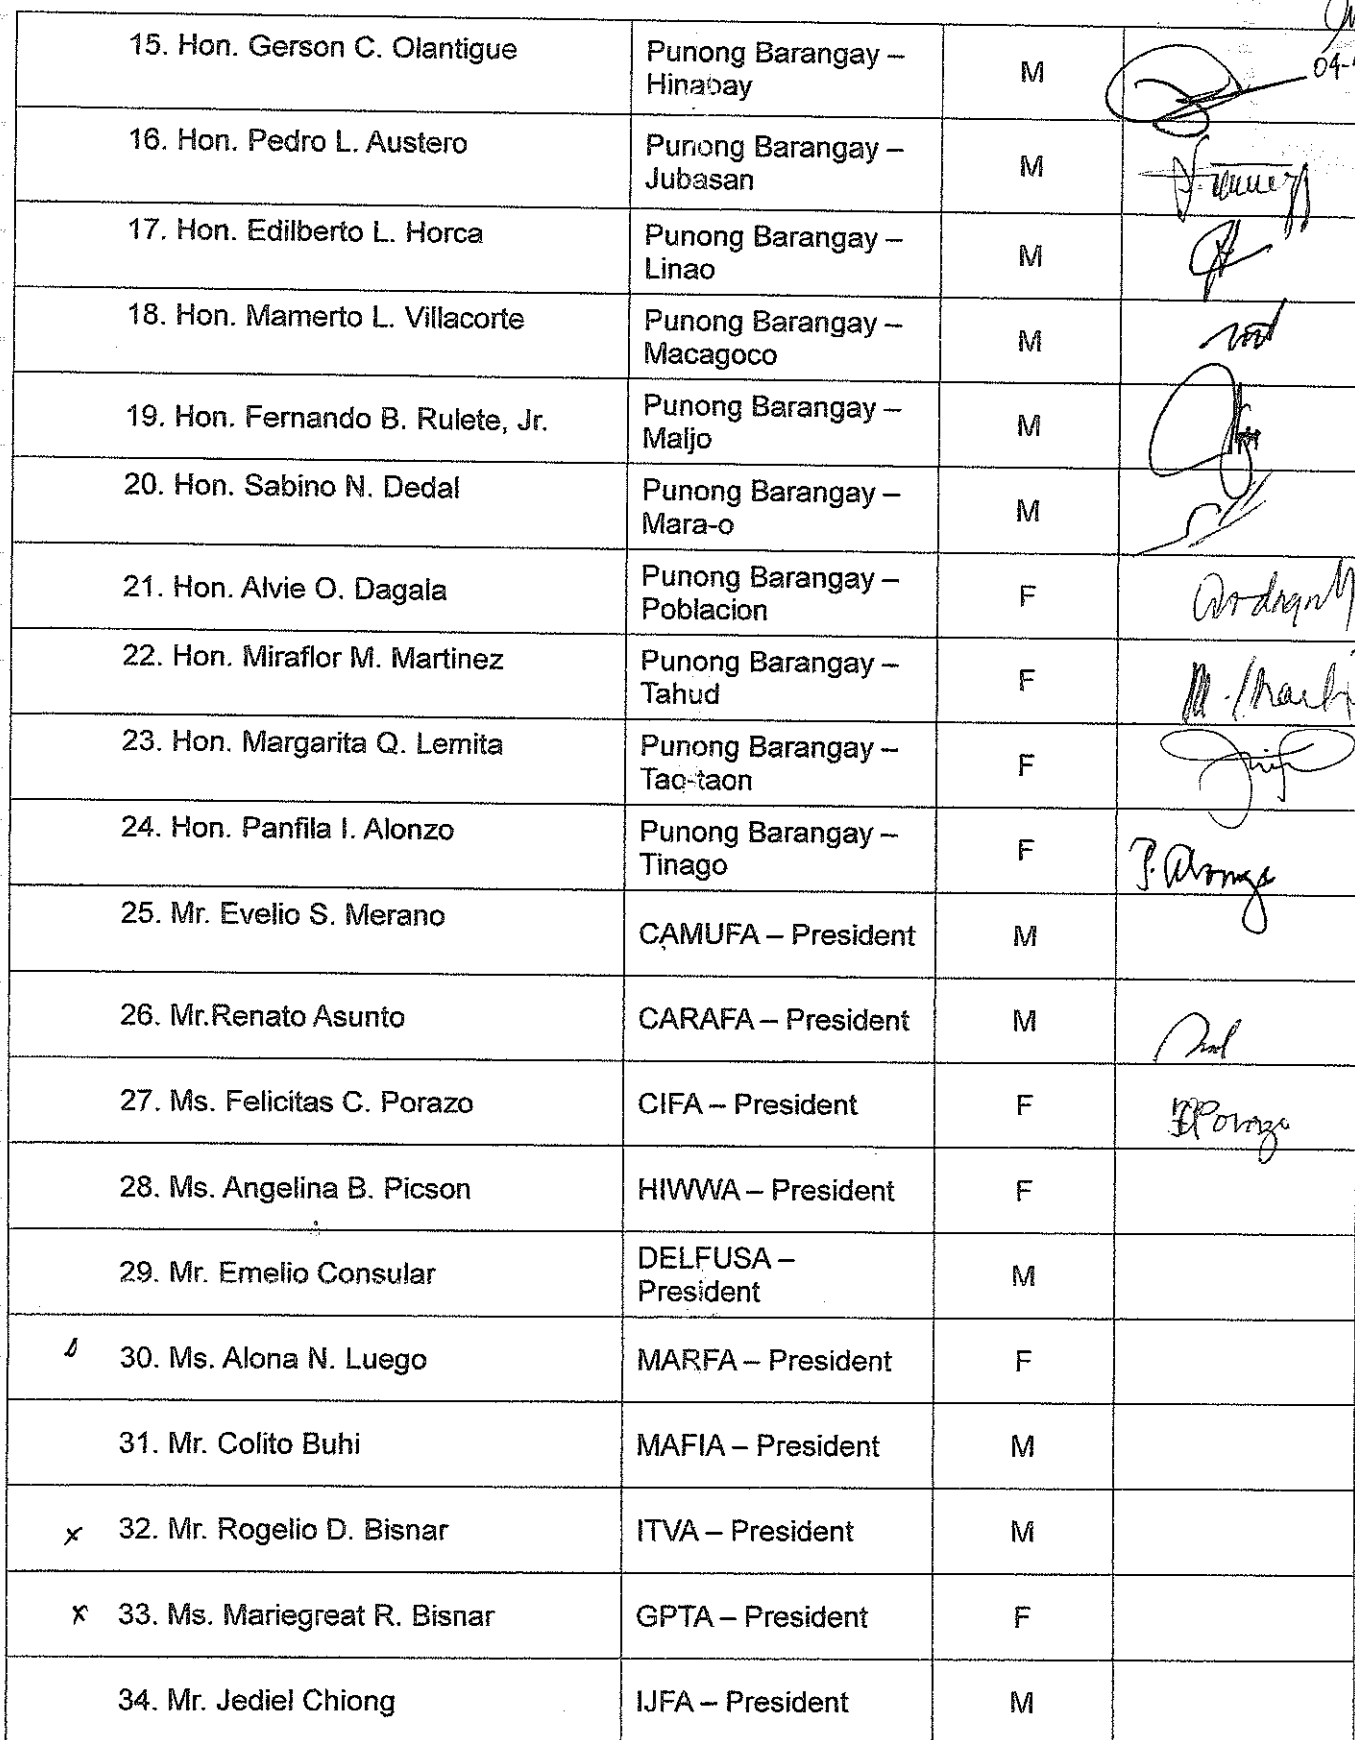 15. Hon. Gerson C. Olantigue
Punong Barangay –
Hinabay
M
04-
16. Hon. Pedro L. Austero
Punong Barangay –
Jubasan
M
17. Hon. Edilberto L. Horca
Punong Barangay –
Linao
M
18. Hon. Mamerto L. Villacorte
Punong Barangay –
Macagoco
M
19. Hon. Fernando B. Rulete, Jr.
Punong Barangay –
Maljo
M
20. Hon. Sabino N. Dedal
Punong Barangay –
Mara-o
M
21. Hon. Alvie O. Dagala
Punong Barangay –
Poblacion
F
22. Hon. Miraflor M. Martinez
Punong Barangay –
Tahud
F
23. Hon. Margarita Q. Lemita
Punong Barangay –
Tao-taon
F
24. Hon. Panfila I. Alonzo
Punong Barangay –
Tinago
F
P. Alonzo
25. Mr. Evelio S. Merano
CAMUFA – President
M
26. Mr.Renato Asunto
CARAFA – President
M
27. Ms. Felicitas C. Porazo
CIFA – President
F
28. Ms. Angelina B. Picson
HIWWA – President
F
29. Mr. Emelio Consular
DELFUSA –
President
M
30. Ms. Alona N. Luego
MARFA – President
F
31. Mr. Colito Buhi
MAFIA – President
M
x 32. Mr. Rogelio D. Bisnar
ITVA – President
M
x 33. Ms. Mariegreat R. Bisnar
GPTA – President
F
34. Mr. Jediel Chiong
IJFA – President
M